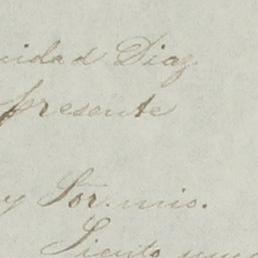 nidad Diaz
presente
y Sor. mio.
Siento muc